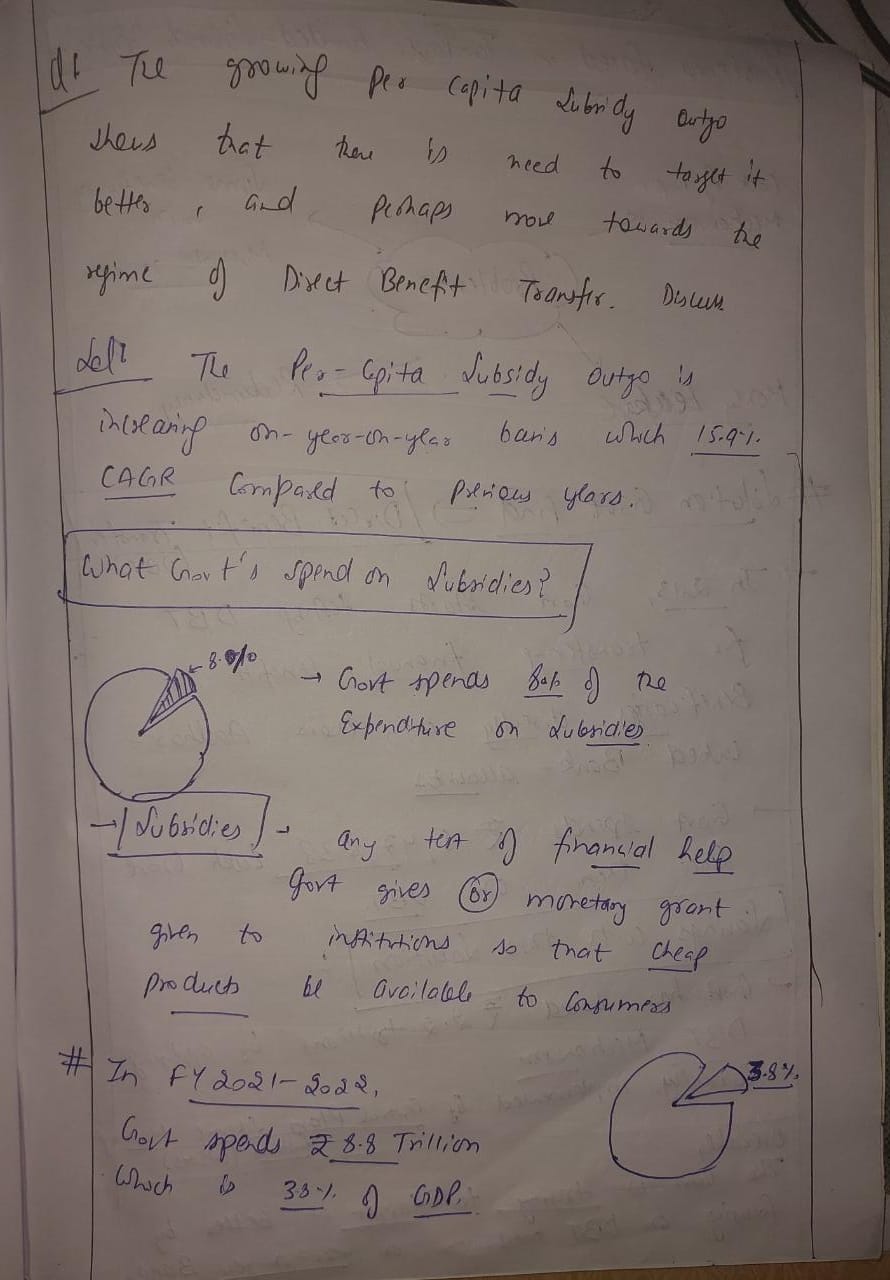 The growing per capita Subsidy Outgo
shows that there is need to target it
better, and perhaps move towards the
regime of Direct Benefit Transfer. Discuss
The Per-Capita Subsidy Outgo is
increasing on-year-on-year basis which 15.9%.
CAGR Compared to previous years.
What Govt's spend on Subsidies?
→ Govt spends of the
Expenditure on Subsidies
→ Subsidies → any of financial help
govt gives or monetary grant
given to institutions so that cheap
products be available to Consumers
# In FY 2021-2022,
3.8%.
Govt spends ₹ 8.8 Trillion
which is 3.8%. of GDP.